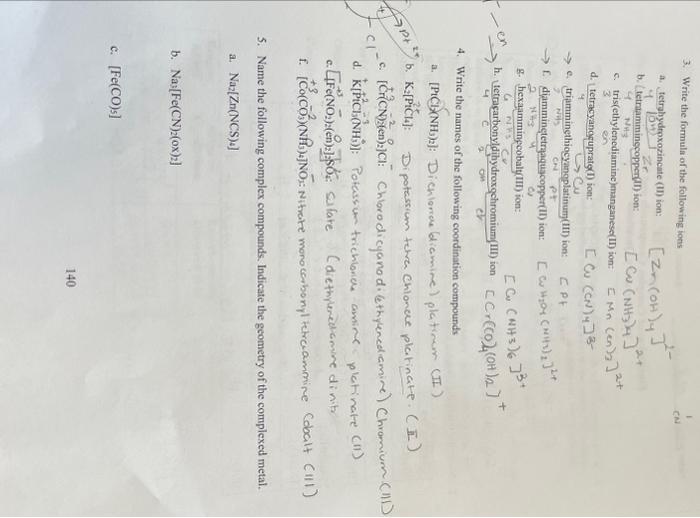 3. Write the formula of the following ions
a. tetrahydroxozincate (II) ion: [Zn(OH)4]2-
4 [OH] Zn
b. tetraamminecopper(II) ion: [Cu(NH3)4]2+
4 NH3
c. tris(ethylenediamine)manganese(II) ion: [Mn(en)3]2+
3 en
d. tetracyanocuprate(I) ion: [Cu(CN)4]3-
4 → Cu
→ e. triamminethiocyanoplatinum(III) ion: [Pt
3 NH3 CN Pt
→ f. diamminetetraaquacopper(II) ion: [Cu H2O4(NH3)2]2+
2 NH3 4 Cu
g. hexaamminecobalt(III) ion: [Cu(NH3)6]3+
6 NH3 Cu
→ h. tetracarbonyldihydroxochromium(III) ion [Cr(CO)4(OH)2]+
4 C 2 OH Cr
4. Write the names of the following coordination compounds
a. [PtCl2(NH3)2]: Dichloride(diamine) platinum (II)
b. K2[PtCl4]: Dipotassium tetra chloride platinate. (II)
c. [Cr(CN)2(en)2]Cl: Chlorodicyanodi(ethylenediamine) Chromium (III)
d. K[PtCl3(NH3)]: Potassium trichloride amine platinate (II)
e. [Fe(NO2)2(en)2]2SO4: Sulfate (diethylenediamine dinit
f. [Co(CO3)(NH3)4]NO3: Nitrate monocarbonyl tetraammine Cobalt (III)
5. Name the following complex compounds. Indicate the geometry of the complexed metal.
a. Na2[Zn(NCS)4]
b. Na3[Fe(CN)2(ox)2]
c. [Fe(CO)5]
140